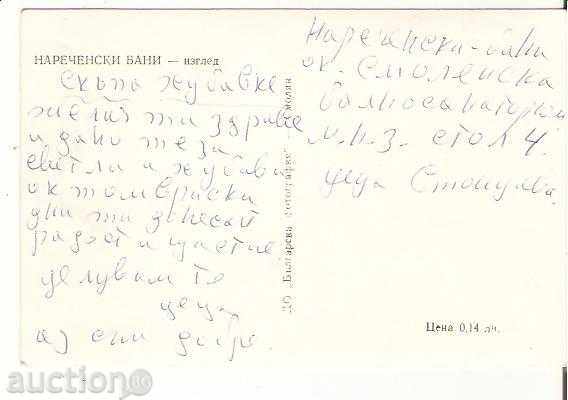 НАРЕЧЕНСКИ БАНИ — изглед
Скъпа хубавке
желая ти здраве
и дано тези
светли и хубави
октомврийски
дни ти донесат
радост и щастие
целувам те
Цеца
аз съм добре
ДО „Българска фотография“ Смолян
Нареченски-бани
ок. Смоленска
балнеосанаториум
М.Н.З. стол 4.
Цеца Стоицова.
Цена 0,14 лв.
auction.bg